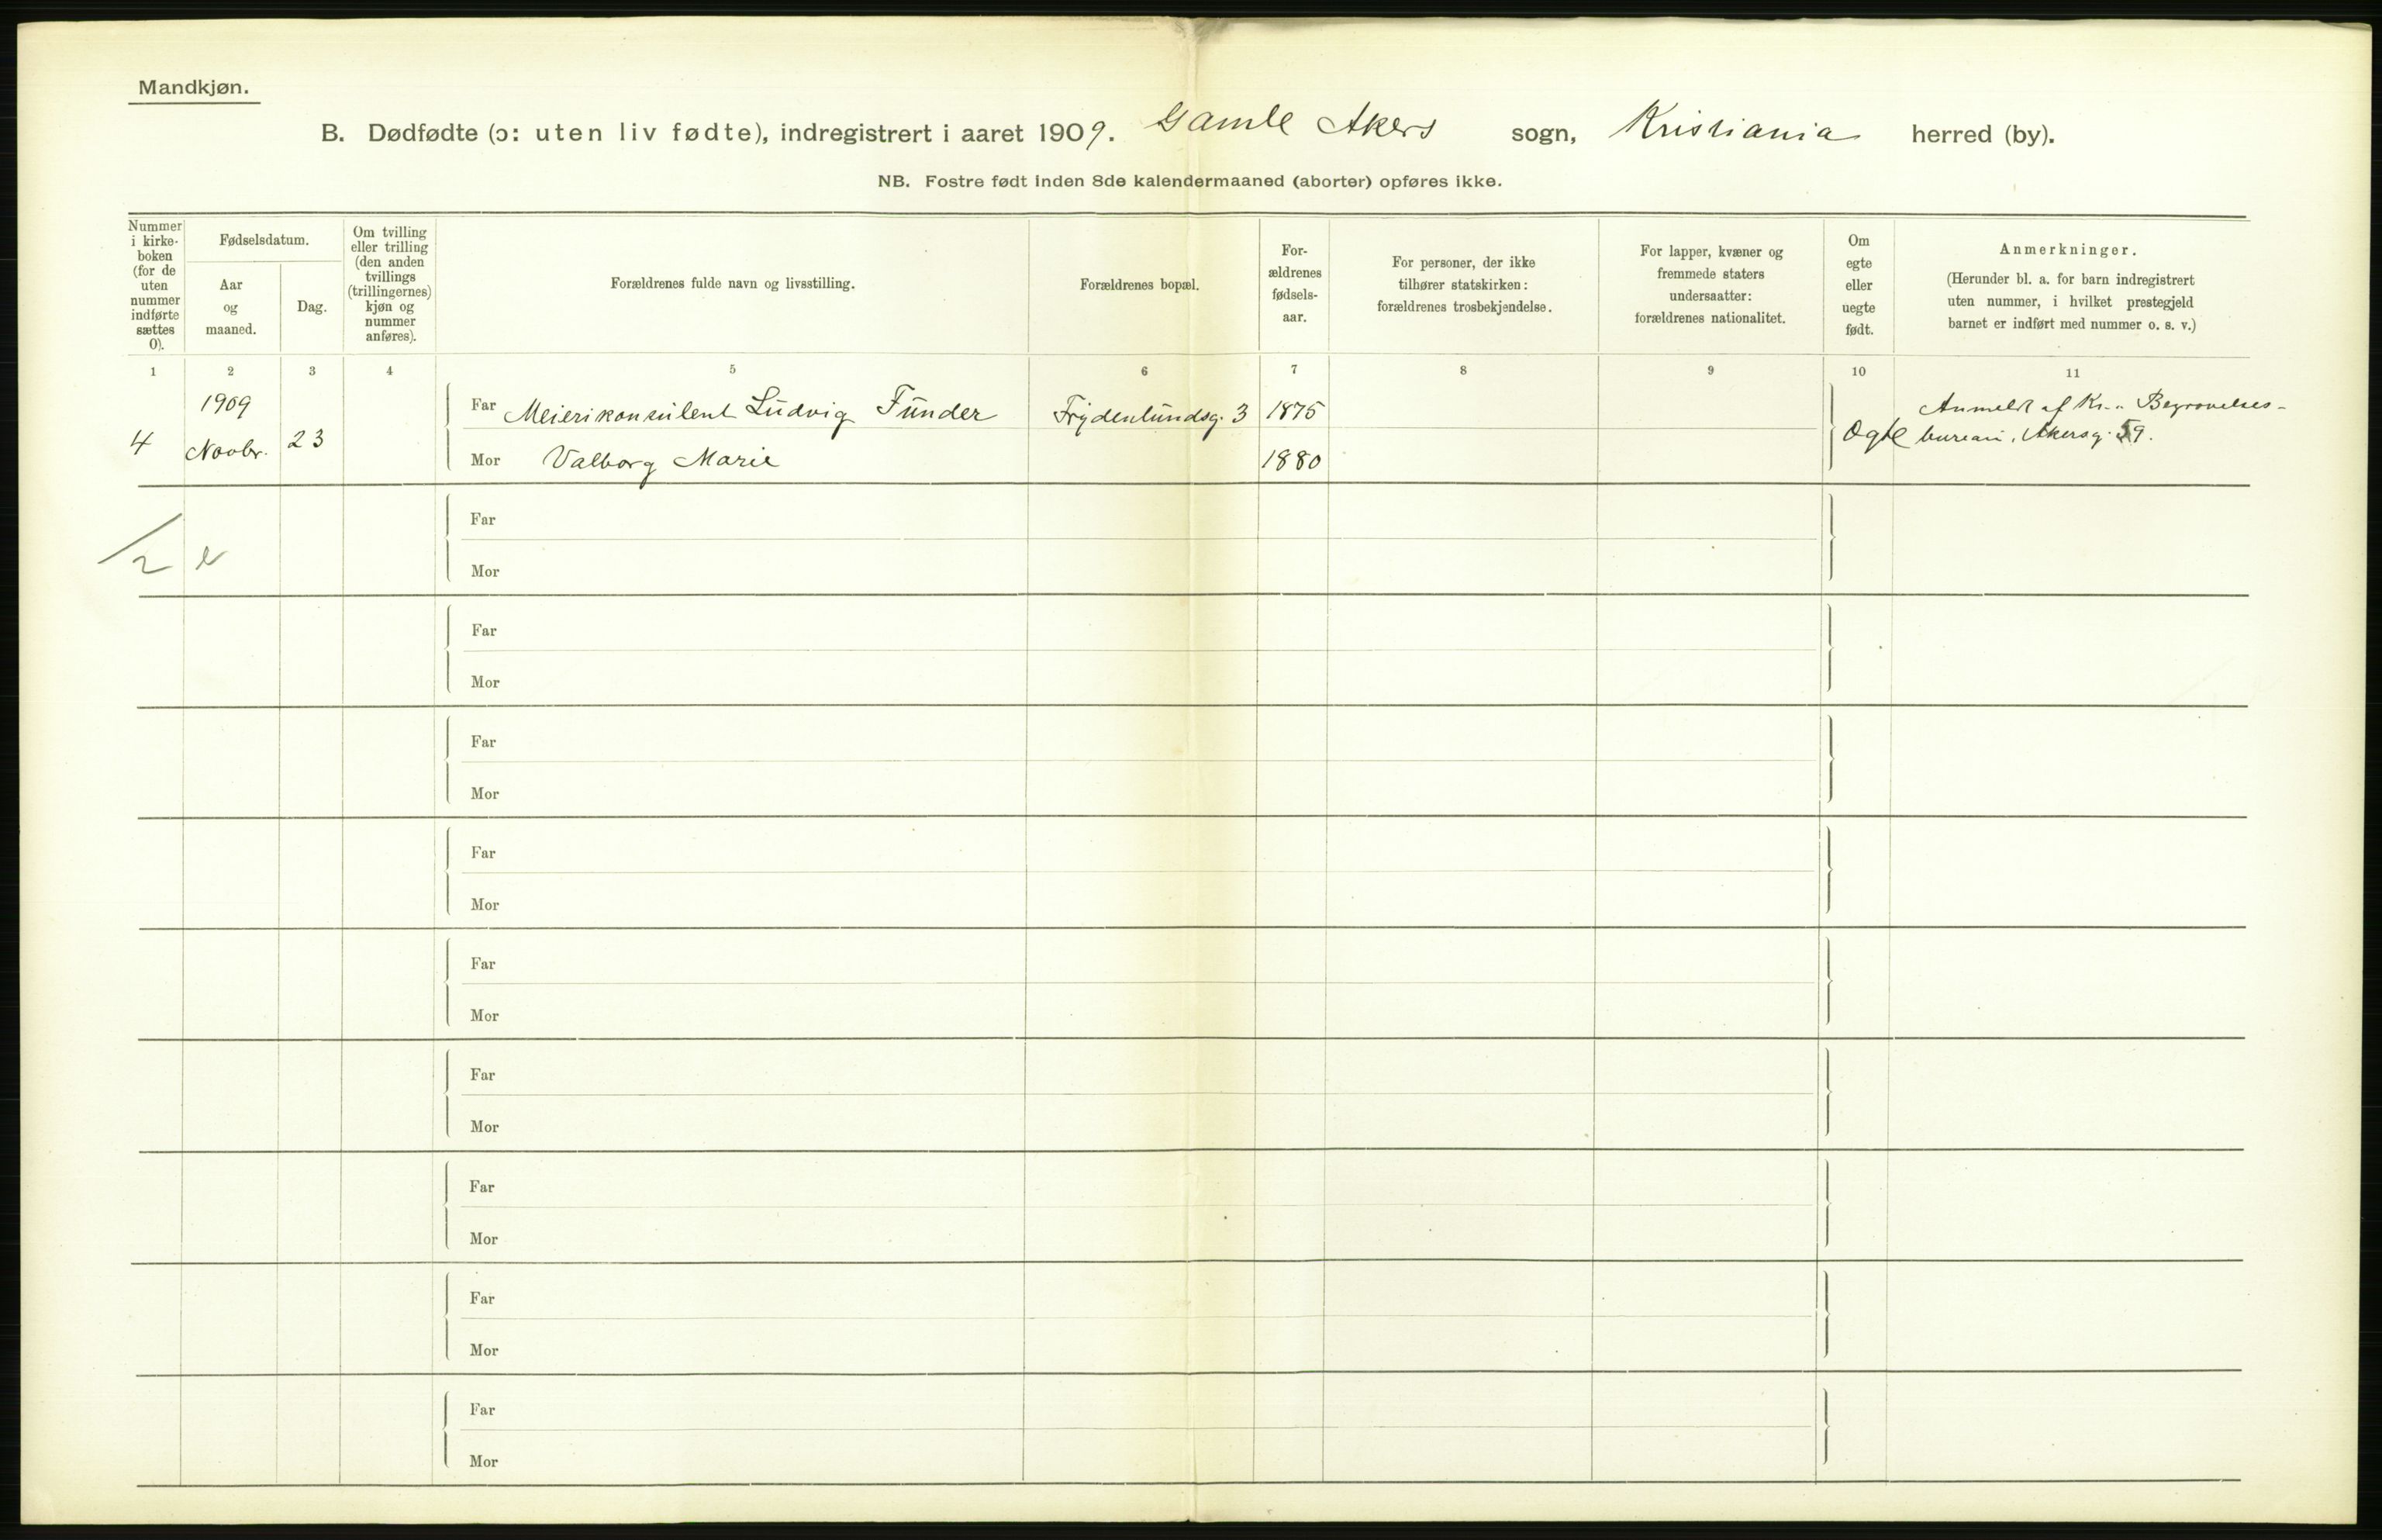 Mandkjøn.
B. Dødfødte (ɔ: uten liv fødte), indregistrert i aaret 1909. Gamle Akers sogn, Kristiania herred (by).
NB. Fostre født inden 8de kalendermaaned (aborter) opføres ikke.
Nummer
i kirke-
boken
(for de
uten
nummer
indførte
sættes
0).
Fødselsdatum.
Aar
og
maaned.
Dag.
Om tvilling
eller trilling
(den anden
tvillings
(trillingernes)
kjøn og
nummer
anføres).
Forældrenes fulde navn og livsstilling.
Forældrenes bopæl.
For-
ældrenes
fødsels-
aar.
For personer, der ikke
tilhører statskirken:
forældrenes trosbekjendelse.
For lapper, kvæner og
fremmede staters
undersaatter:
forældrenes nationalitet.
Om
egte
eller
uegte
født.
Anmerkninger.
(Herunder bl. a. for barn indregistrert
uten nummer, i hvilket prestegjeld
barnet er indført med nummer o. s. v.)
1 2 3 4 5 6 7 8 9 10 11
4
1909
Novbr.
23
Far Meierikonsulent Ludvig Funder
Frydenlundsg. 3
1875
Mor Valborg Marie
1880
Ogte
Anmeldt af Kr.a Begravelses-
bureau, Akersg. 59.
Far
2
Mor
Far
Mor
Far
Mor
Far
Mor
Far
Mor
Far
Mor
Far
Mor
Far
Mor
Far
Mor